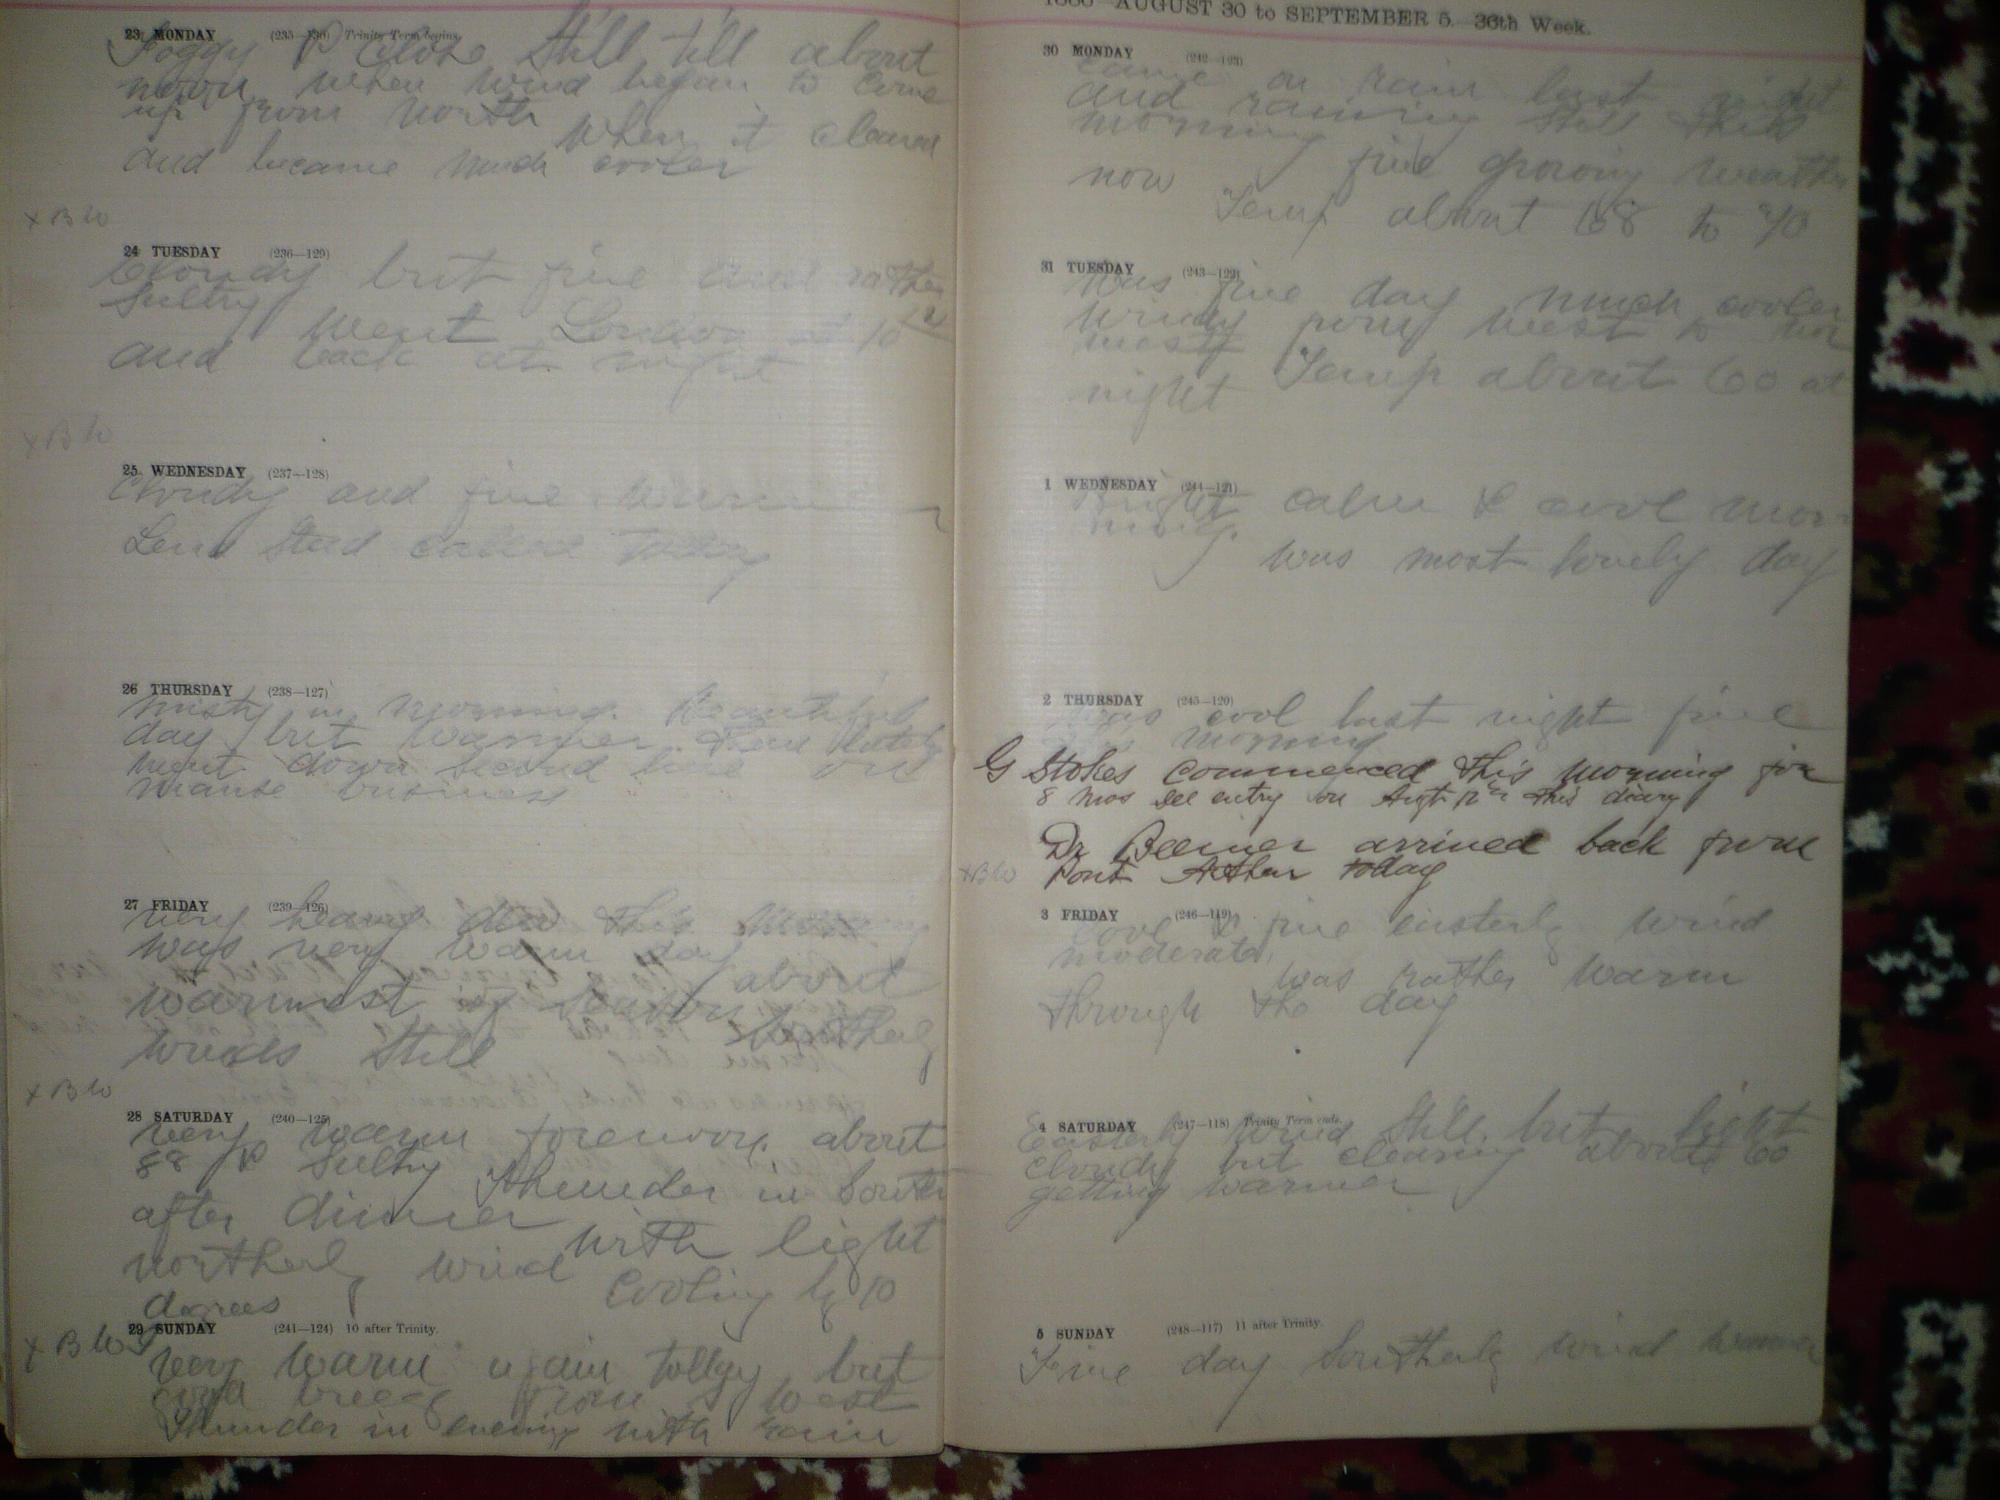 23 MONDAY (235—130) Trinity Term begins.
Foggy & close Still till about
noon when wind began to come
up from North
When it cleared
and became much cooler
x B W
24 TUESDAY (236—129)
Cloudy but fine and rather
Sultry
Went London at 10 12
and back at night
x B W
25 WEDNESDAY (237—128)
Cloudy and fine
Lend Steed called today
26 THURSDAY (238—127)
misty in morning. Beautiful
day but warmer
went down second line on
manse business
27 FRIDAY (239—126)
very heavy dew this morning
was very warm day
about
warmest of season
Southerly
winds still
x B W
28 SATURDAY (240—125)
Very warm forenoon about
88 & Sultry Thunder in South
after dinner
with light
northerly wind
Cooling by 10
degrees
x B W
29 SUNDAY (241—124) 10 after Trinity.
very warm again today but
breeze from S West
Thunder in evening with rain
AUGUST 30 to SEPTEMBER 5. 36th Week.
30 MONDAY (242—123)
Came on rain last night
and raining still this
morning
fine growing weather
now
Temp about 68 to 70
31 TUESDAY (243—122)
Was fine day much cooler
Windy from West to nor
west
Temp about 60 at
night
1 WEDNESDAY (244—121)
Bright calm & cool mor
ning.
was most lovely day
2 THURSDAY (245—120)
was cool last night fine
morning
G Stokes commenced this morning for
8 mos see entry on Augt 12th this diary
Dr Beemer arrived back from
Port Arthur today
x B W
3 FRIDAY (246—119)
Cool & fine easterly wind
moderate,
was rather warm
through the day
4 SATURDAY (247—118) Trinity Term ends.
Easterly wind Still but light
cloudy but clearing about 60
getting warmer
5 SUNDAY (248—117) 11 after Trinity.
Fine day Southerly wind warmer